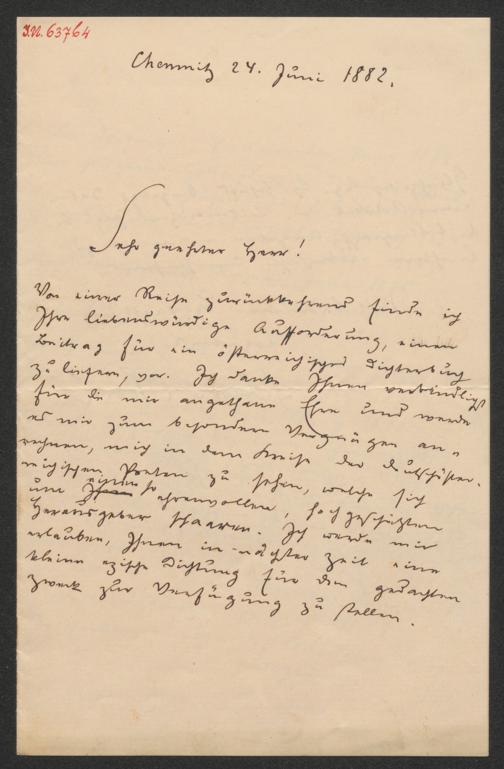 J.N. 63764
Chemnitz 24. Juni 1882.
Sehr geehrter Herr!
Von einer Reise zurückkehrend finde ich
Ihre liebenswürdige Aufforderung, einen
Beitrag für ein österreichisches Dichterbuch
zu liefern, vor. Ich danke Ihnen verbindlichst
für die mir angethane Ehre und werde
es mir zum besondern Vergnügen an-
rechnen, mich in dem Kreise der deutschöster-
reichischen Poeten zu sehen, welche sich
um einen so ehrenvollen, hochgeschätzten
Herausgeber schaaren. Ich werde mir
erlauben, Ihnen in nächster Zeit eine
kleine epische Dichtung für den gedachten
Zweck zur Verfügung zu stellen.